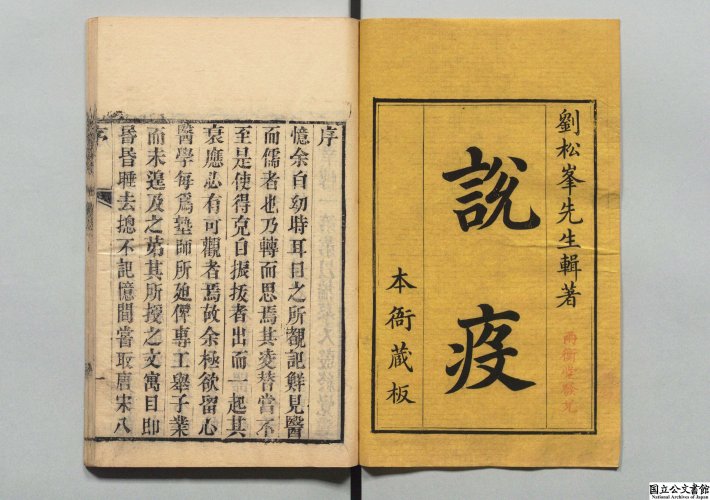 劉松峯先生輯著
說疫
本衙藏板
序
憶余自幼時耳目之所覩記鮮見醫
而儒者也乃轉而思焉其凌替當不
至是使得克自振拔者出而一起其
衰應必有可觀者焉故余極欲留心
醫學每爲塾師所迫俾專工舉子業
而未遑及之第其所授之文寓目卽
昏昏睡去摠不記憶間嘗取唐宋八
序
一
国立公文書館
National Archives of Japan